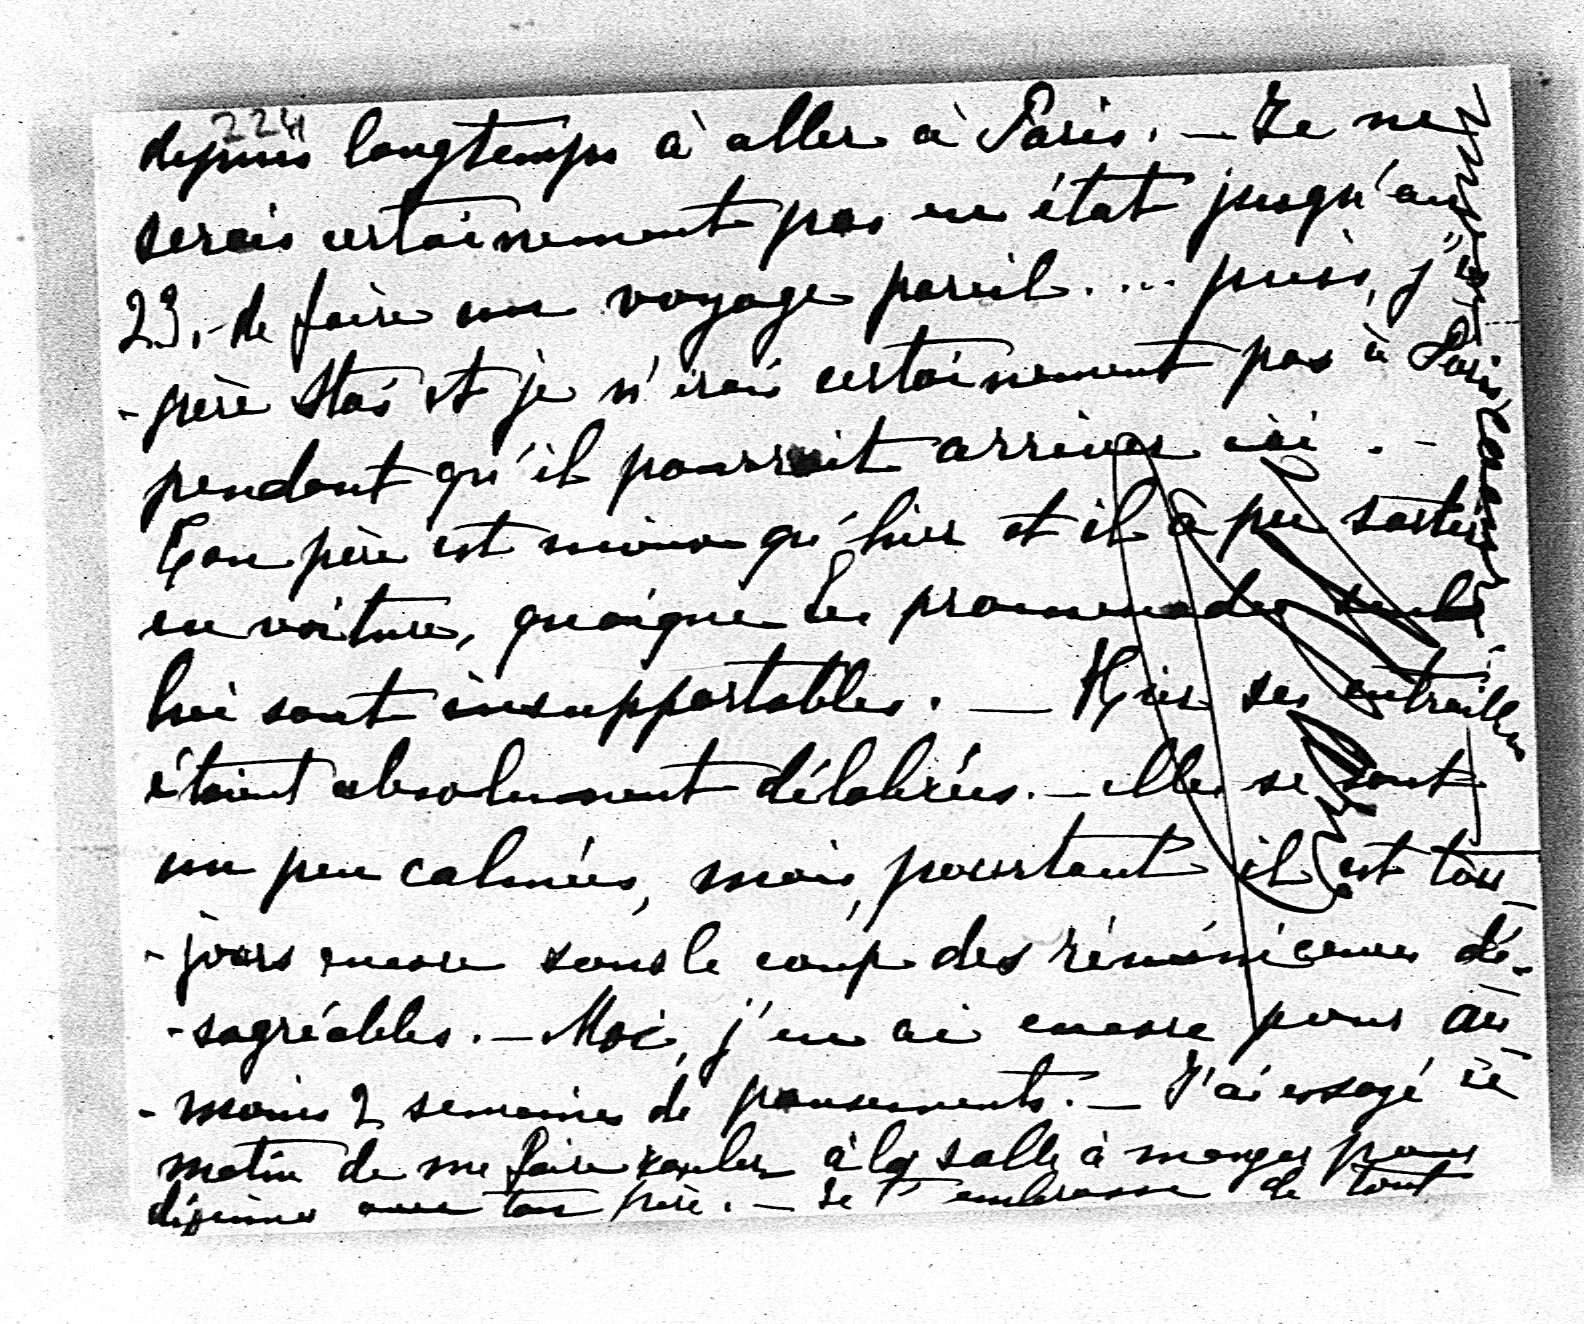 224
depuis longtemps à aller à Paris. — Je ne
serais certainement pas en état jusqu'au
23, - de faire un voyage pareil.... puis, j'es
-père Stas et je n'irai certainement pas à Paris
pendant qu'il pourrait arriver ici. -
Ton père est mieux qu'hier et il a pu sortir
en voiture, quoique les promenades seules
lui sont insupportables. — Hier ses entrailles
étaient absolument délabrées. — elles se sont
un peu calmées, mais, pourtant il est tou-
-jours encore sous le coup des réminicences dé-
-sagréables. — Moi, j'en ai encore pour au
-moins 2 semaines de pansements. — J'ai essayé ce
matin de me faire rouler à la salle à manger pour
déjeuner avec ton père. — Je t'embrasse de tout